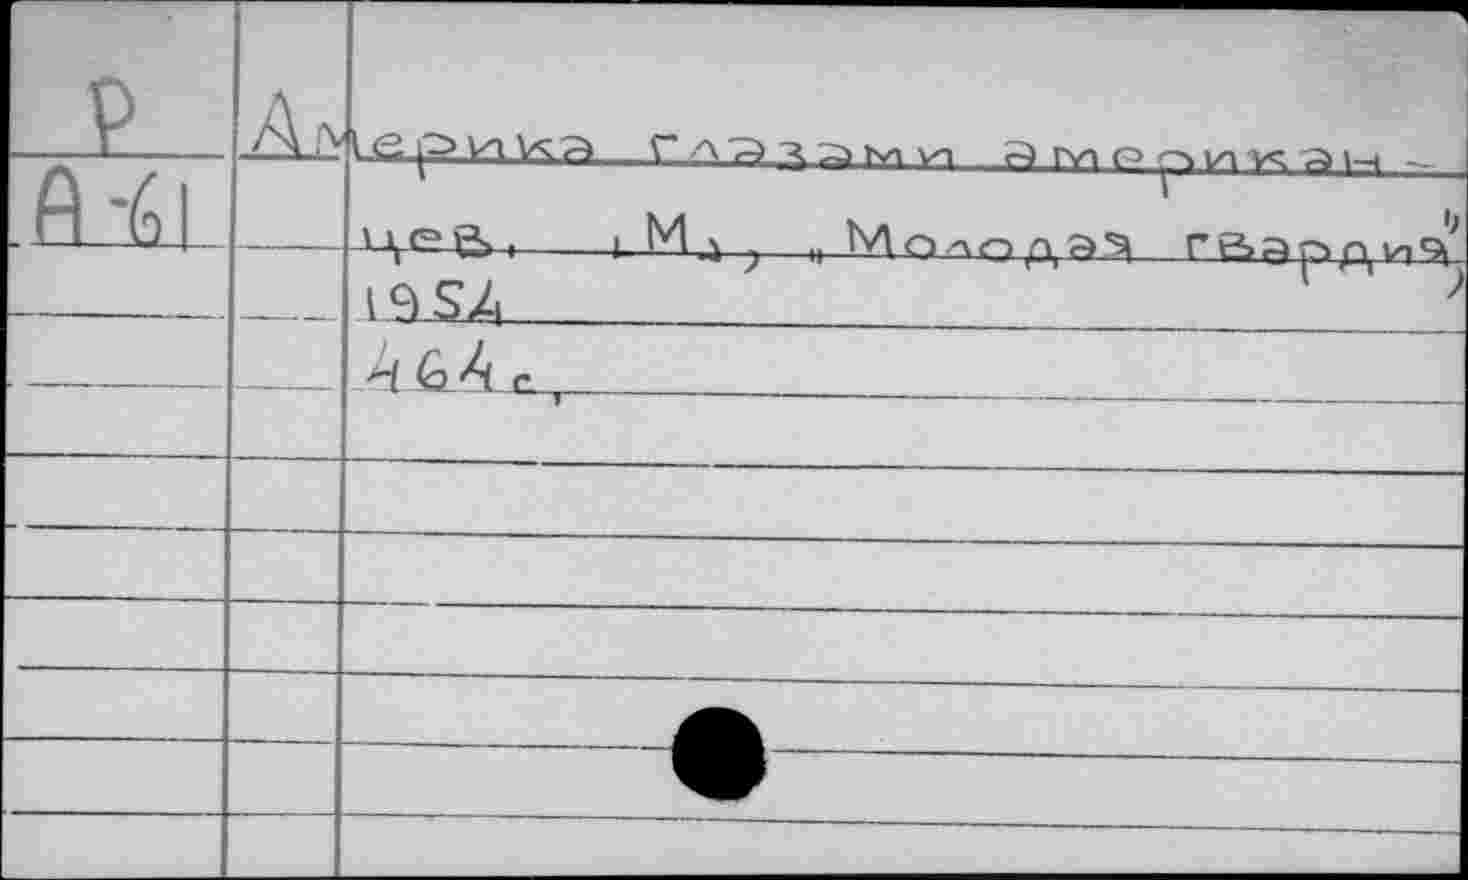 Р
А-61
Америка глазами американ-
цев. М., „Молодая гвардия",
1954
464 с.